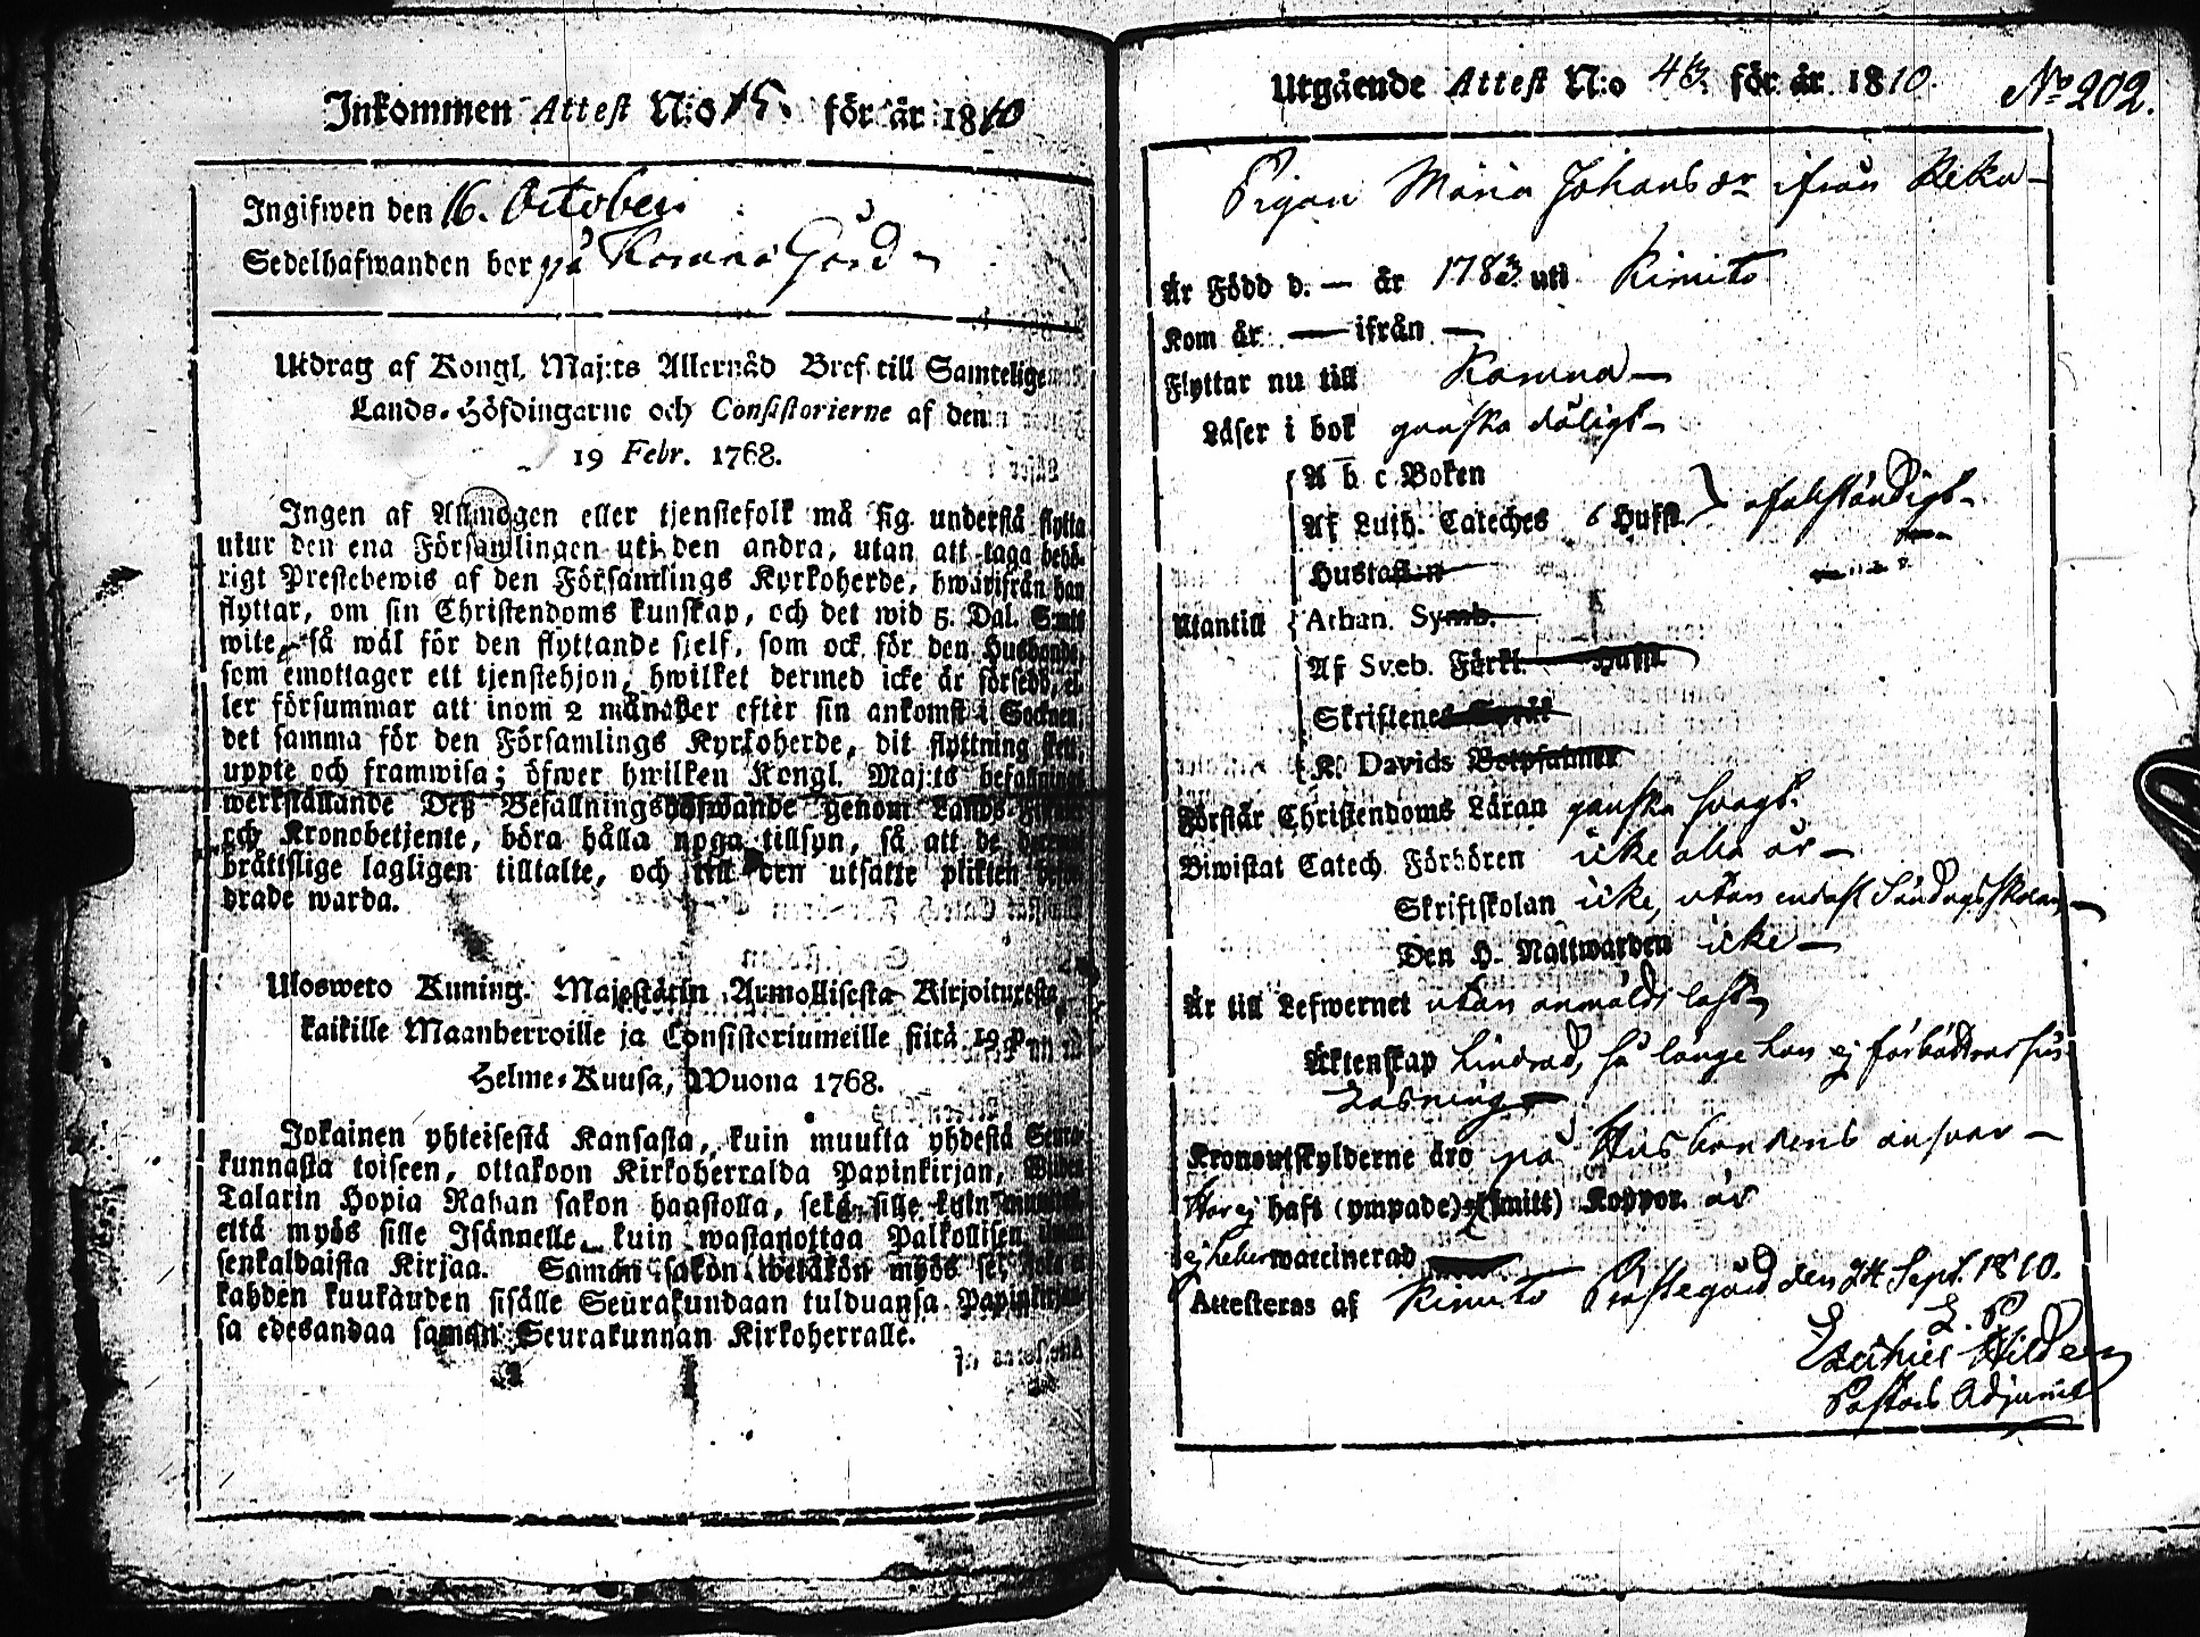 Inkommen Attest N:o 15. för år 1810
Ingifwen den 16. October
Sedelhafwanden bor på Karuna Gård
Utdrag af Kongl. Maj:ts Allernåd Bref till Samtelige
Lands-Höfdingarne och Consistorierne af den
19 Febr. 1768.
Ingen af Allmogen eller tjenstefolk må sig understå flytta
utur den ena Församlingen uti den andra, utan att taga behö-
rigt Prestebewis af den Församlings Kyrkoherde, hwarifrån han
flyttar, om sin Christendoms kunskap, och det wid 5. Dal. S:mts
wite, så wäl för den flyttande sjelf, som ock för den Husbonde,
som emottager ett tjenstehjon, hwilket dermed icke är försedd, el-
ler försummar att inom 2 månader efter sin ankomst i Socknen,
det samma för den Församlings Kyrkoherde, dit flyttning sket,
uppte och framwisa; öfwer hwilken Kongl. Maj:ts befallnings
werkställande Deß Befallningshafwande genom Lands
och Kronobetjente, böra hålla noga tillsyn, så att de
bråttslige lagligen tilltalte, och till den utsatte plikten
drade warda.
Ulosweto Kuning. Majestätin Armollisesta Kirjoituxesta
kaikille Maanherroille ja Consistoriumeille siitä 19 p.
Helme-Kuusa, Wuona 1768.
Jokainen yhteisestä Kansasta, kuin muutta yhdestä Seura-
kunnasta toiseen, ottakoon Kirkoherralda Papinkirjan, Wiiden
Talarin Hopia Rahan sakon haastolla, sekä sille kuin
että myös sille Isännelle kuin wastanottaa Palkollisen ilman
senkaldaista Kirjaa. Saman sakon wetäkön myös se,
kahden kuukauden sisälle Seurakundaan tulduansa Papinkirjan-
sa edesandaa saman Seurakunnan Kirkoherralle.
Utgående Attest N:o 43. för år 1810. No 202.
Pigan Maria Johansdr ifrån Reku
Är Född d. — år 1783 uti Kimito
Kom år — ifrån —
Flyttar nu till Karuna
Läser i bok ganska dåligt
A b c Boken
Af Luth. Cateches 6 Hufst ofullständigt
Hustaflan
Utantill Athan. Symb.
Af Sveb. Förkl. Hufst
Skriftenes Språk
K. Davids Botpsalmer
Förstår Christendoms Läran ganska swagt.
Biwistat Catech Förhören icke alla år
Skriftskolan icke, utan endast Söndagsskolan
Den H. Nattwarden icke
Är till Lefwernet utan anmäldt last
Äktenskap hindrad, så länge hon ej förbättrar sin
Läsning
Kronoutskylderne äro på Husbondens answar
Har ej haft (ympade) (smitt) Koppor. är
ej heller waccinerad
Attesteras af Kimito Prästegård den 24 Sept. 1810.
Hildeen
Pastors Adjunct